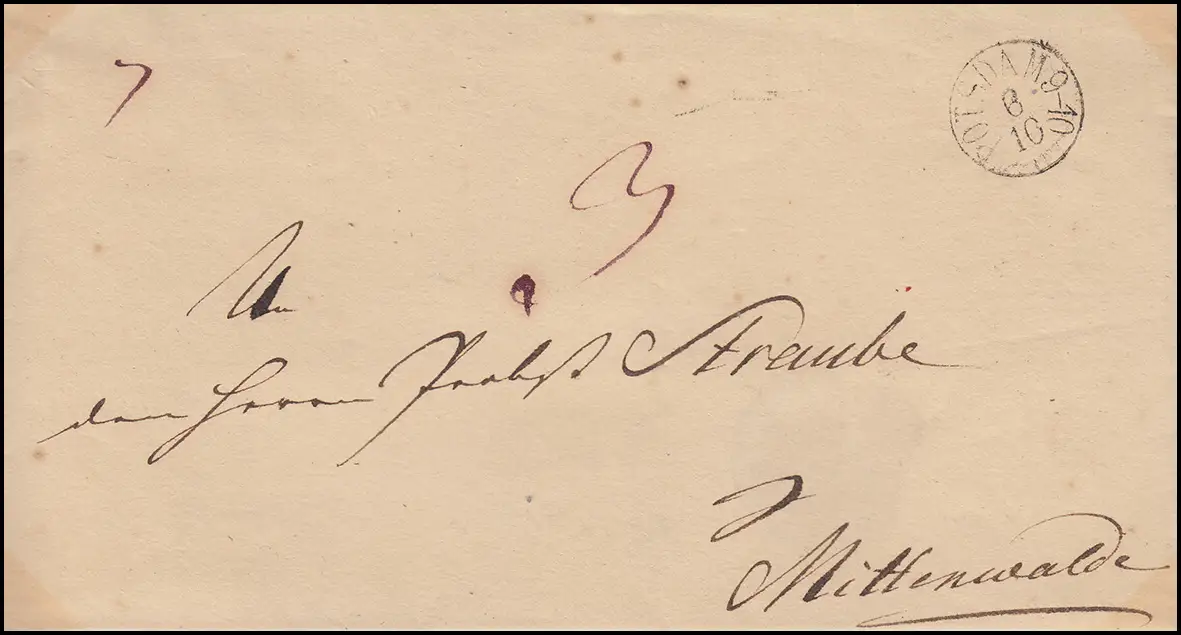 POTSDAM 9-10
8
10
3
An
den Herrn Probst Straube
Mittenwalde